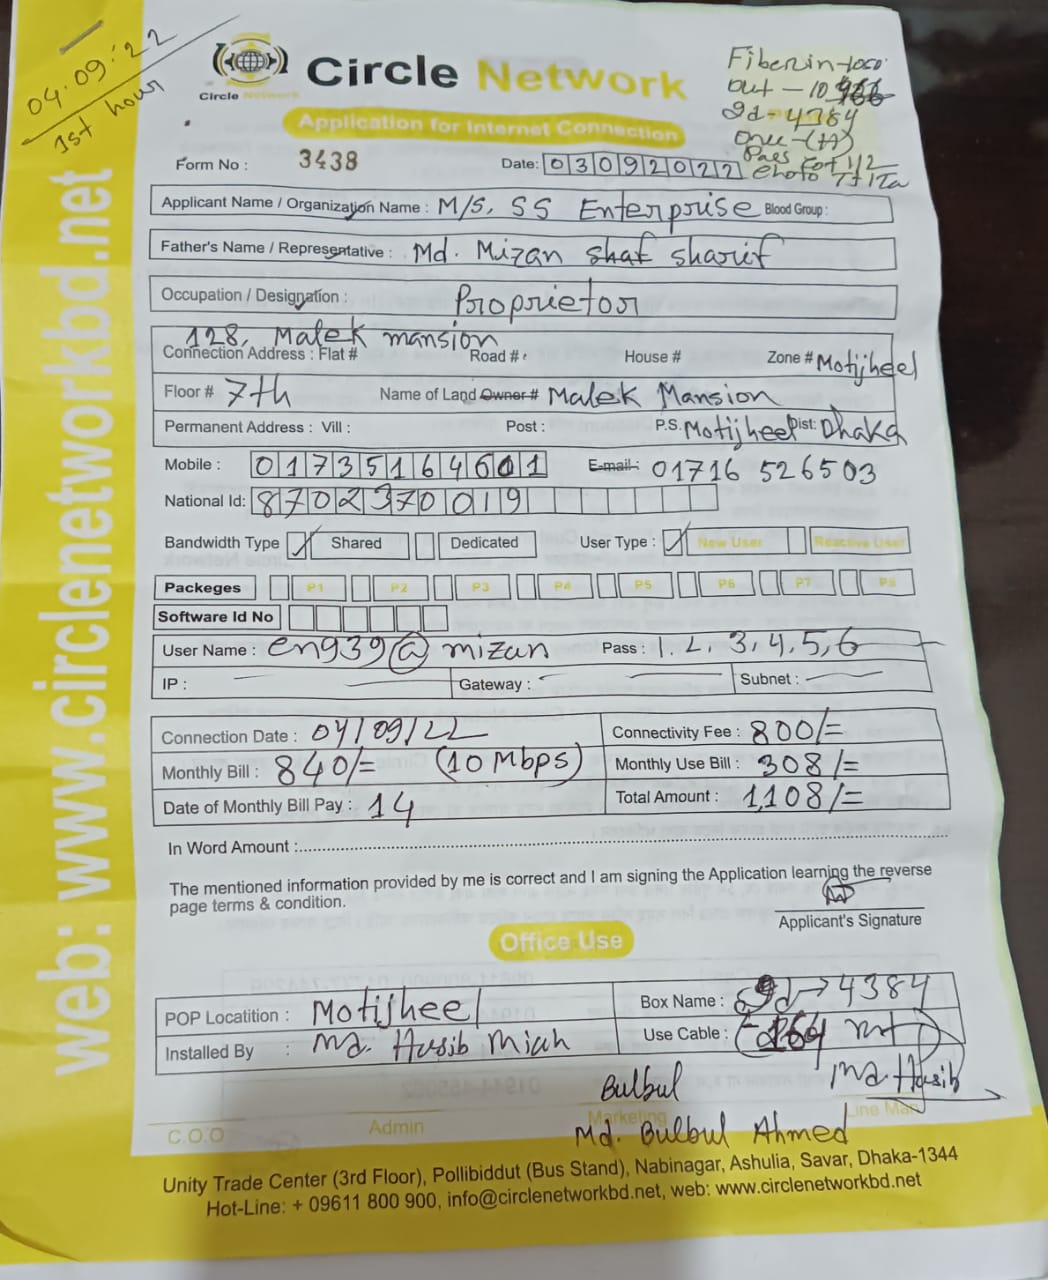 04.09:22
1st hour
Circle Network
Circle Network
Application for Internet Connection
Fiber in - 1050
out - 10
Id - 4384
Onu - (H)
Form No : 3438
Date: 03092022
Applicant Name / Organization Name : M/S, SS Enterprise Blood Group :
Father's Name / Representative : Md. Mizan Shaf Sharif
Occupation / Designation : Proprietor
128, Malek mansion
Connection Address : Flat # Road # House # Zone # Motijheel
Floor # 7th Name of Land Owner # Malek Mansion
Permanent Address : Vill : Post : P.S. Motijheel Dist: Dhaka
Mobile : 01735164601 E-mail : 01716 526503
National Id: 8702370019
Bandwidth Type Shared Dedicated User Type : New User Reactive User
Packeges P1 P2 P3 P4 P5 P6 P7 P8
Software Id No
User Name : eng39@mizan Pass : 1.2,3,4,5,6
IP : Gateway : Subnet :
Connection Date : 04/09/22 Connectivity Fee : 800/=
Monthly Bill : 840/= (10 Mbps) Monthly Use Bill : 308/=
Date of Monthly Bill Pay : 14 Total Amount : 1,108/=
In Word Amount :
The mentioned information provided by me is correct and I am signing the Application learning the reverse
page terms & condition.
Applicant's Signature
Office Use
POP Locatition : Motijheel Box Name : Id→4384
Installed By : Md. Hasib Miah Use Cable : 264 mt
Md. Hasib
Bulbul
C.O.O Admin Marketing Line Man
Md. Bulbul Ahmed
Unity Trade Center (3rd Floor), Pollibiddut (Bus Stand), Nabinagar, Ashulia, Savar, Dhaka-1344
Hot-Line: + 09611 800 900, info@circlenetworkbd.net, web: www.circlenetworkbd.net
web: www.circlenetworkbd.net